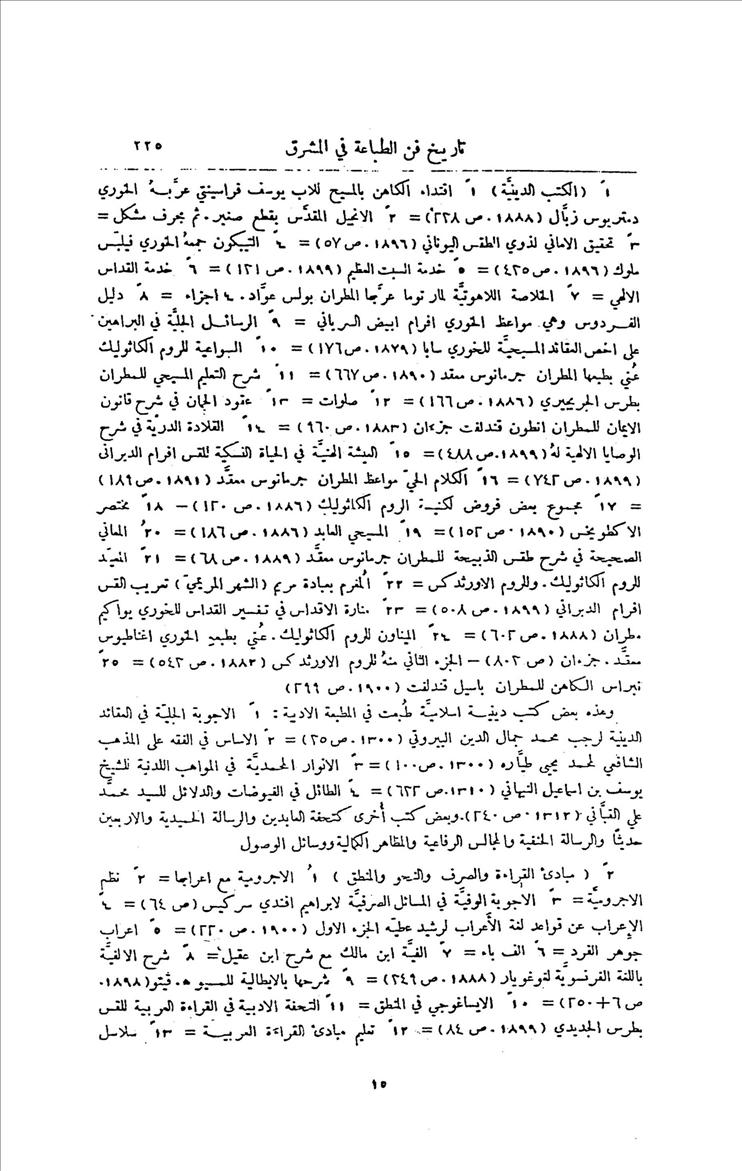 تاريخ فن الطباعة في المشرق ٢٢٥
١ً (الكتب الدينيَّة) ١ً اقتداء الكاهن بالمسيح للاب يوسف فراسيتي عرَّبهُ الخوري
ديمتريوس زبَّال (١٨٨٨. ص ٢٢٨) = ٢ً الانجيل المقدَّس بقطع صغير. ثم بحرف مشكل =
٣ً تحقيق الاماني لذوي الطقس اليوناني (١٨٩٦. ص ٥٧) = ٤ً التيبكون جمعهُ الخوري فيلبّس
ملوك (١٨٩٦. ص ٤٢٥) = ٥ً خدمة السبت العظيم (١٨٩٩. ص ١٢١) = ٦ً خدمة القداس
الالهي = ٧ً الخلاصة اللاهوتيَّة لمار توما عرَّبها المطران بولس عوَّاد. ٤ اجزاء = ٨ً دليل
الفردوس وهي مواعظ الخوري افرام ابيض السرياني = ٩ً الرسائل الجليَّة في البراهين
على اخص العقائد المسيحيَّة للخوري سابا (١٨٧٩. ص ١٧٦) = ١٠ً السواعية للروم الكاثوليك
عُني بطبعها المطران جرمانوس معقد (١٨٩٠. ص ٦٦٧) = ١١ً شرح التعليم المسيحي للمطران
بطرس الجريجيري (١٨٨٦. ص ١٦٦) = ١٢ً صلوات = ١٣ً عقود الجمان في شرح قانون
الايمان للمطران انطون قندلفت جزءان (١٨٨٣. ص ٩٦٠) = ١٤ً القلادة الدرّية في شرح
الوصايا الالهية لهُ (١٨٩٩. ص ٤٨٨) = ١٥ً العيشة الهنيَّة في الحياة النسكية للقس افرام الديراني
(١٨٩٩. ص ٧٤٢) = ١٦ً الكلام الحيّ مواعظ المطران جرمانوس معقَّد (١٨٩١. ص ١٨٩)
= ١٧ً مجموع بعض فروض لكنيسة الروم الكاثوليك (١٨٨٦. ص ١٢٠) – ١٨ً مختصر
الاكطويخس (١٨٩٠. ص ١٥٢) = ١٩ً المسيحي العابد (١٨٨٦. ص ١٨٦) = ٢٠ً المعاني
الصحيحة في شرح طقس الذبيحة للمطران جرمانوس معقَّد (١٨٨٩. ص ٦٨) = ٢١ً المعيّد
للروم الكاثوليك. وللروم الاورثدكس = ٢٢ً المغرم بعبادة مريم (الشهر المريمي) تعريب القس
افرام الديراني (١٨٩٩. ص ٥٠٨) = ٢٣ً منارة الاقداس في تفسير القداس للخوري يواكيم
مطران (١٨٨٨. ص ٦٠٢) = ٢٤ً الميناون للروم الكاثوليك. عُني بطبعهِ الخوري اغناطيوس
معقَّد. جزءان (ص ٨٠٢) – الجزء الثاني منهُ للروم الاورثدكس (١٨٨٣. ص ٥٤٢) = ٢٥ً
نبراس الكاهن للمطران باسيل قندلفت (١٩٠٠. ص ٢٩٩)
وهذه بعض كتب دينية اسلاميَّة طُبعت في المطبعة الادبية: ١ً الاجوبة الجليَّة في العقائد
الدينية لرجب محمد جمال الدين البيروتي (١٣٠٠. ص ٢٥) = ٢ً الاساس في الفقه على المذهب
الشافعي لمحمد يحيى طبَّاره (١٣٠٠. ص ١٠٠) = ٣ً الانوار المحمديَّة في المواهب اللدنية للشيخ
يوسف بن اسماعيل النبهاني (١٣١٠. ص ٦٣٢) = ٤ً الطائل في الفيوضات والدلائل للسيد محمَّد
علي القبَّاني (١٣١٢. ص ٢٤٠). وبعض كتب أُخرى كتحفة العابدين والرسالة الحميدية والاربعين
حديثًا والرسالة الحنفية والمجالس الرفاعية والمظاهر الكمالية ووسائل الوصول
٢ً (مبادئ القراءة والصرف والنحو والمنطق) ١ً الاجرومية مع اعرابها = ٢ً نظم
الاجروميَّة = ٣ً الاجوبة الوفيَّة في المسائل الصرفيَّة لابراهيم افندي سركيس (ص ٦٤) = ٤ً
الإعراب عن قواعد لغة الأعراب لرشيد عطيَّه الجزء الاول (١٩٠٠. ص ٢٢٠) = ٥ً اعراب
جوهر الفرد = ٦ً الف باء = ٧ً الفيَّة ابن مالك مع شرح ابن عقيل = ٨ً شرح الالفيَّة
باللغة الفرنسويَّة لغوغويار (١٨٨٨. ص ٢٤٩) = ٩ً شرحها بالايطالية للسيو ه. ڤيتو (١٨٩٨.
ص ٦+٢٥٠) = ١٠ً الايساغوجي في المنطق = ١١ً التحفة الادبية في القراءة العربية للقس
بطرس الجديدي (١٨٩٩. ص ٨٤) = ١٢ً تعليم مبادئ القراءة العربية = ١٣ً سلاسل
١٥